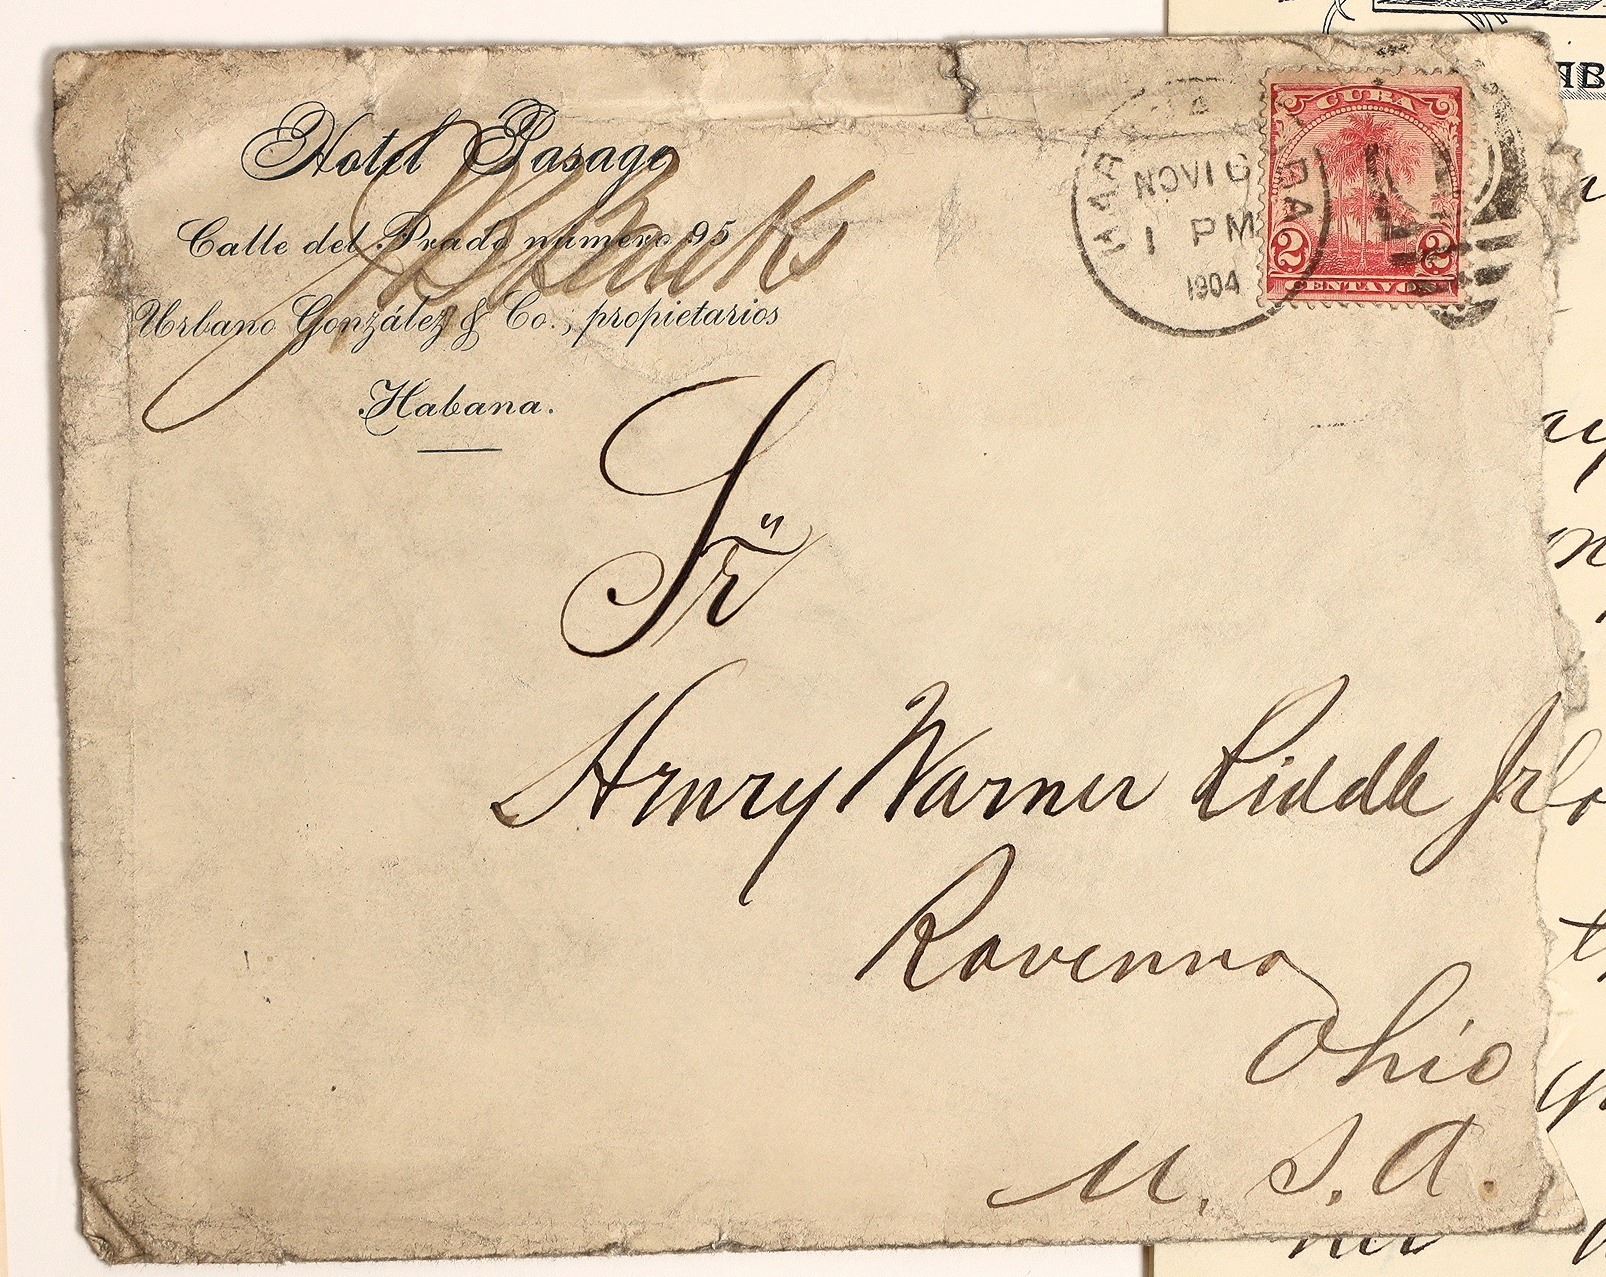 Hotel Pasage
Calle del Prado número 95
Urbano González & Co., propietarios
Habana.
NOV 16
1 PM
1904
CUBA
2 2
CENTAVOS
Sr
Henry Warner Riddle Jr
Ravenna
Ohio
U. S. A.